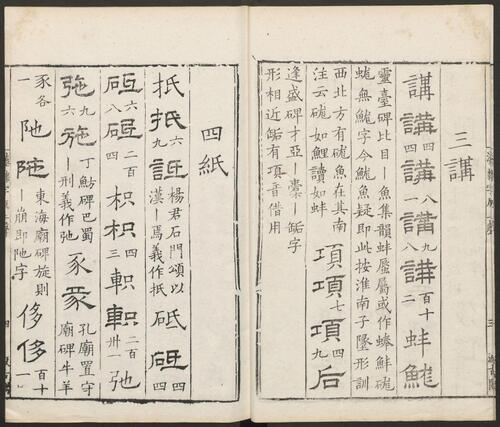 三講
講講四講一八講八九講二百十蚌鮏
靈臺碑比目丨魚集韻蚌蜃屬或作蜯鮮硥
蠯無鮏字今鮏魚疑即此按淮南子墬形訓
西北方有硥魚在其南
注云硥如鯉讀如蚌
項項七項四九后
逄盛碑才亞丨橐丨缿字
形相近缿有項音借用
四紙
抵抵六九詆
楊君石門頌以
漢丨焉義作抵
砥砥四四
砥六八砥二百四枳枳四三軹軹二百卅一弛
弛九六施
丁魴碑巴蜀
丨刑義作弛
豕豕
孔廟置守
廟碑牛羊
豕各一
阤阤
東海廟碑旋則
丨崩即阤字
侈侈百十一